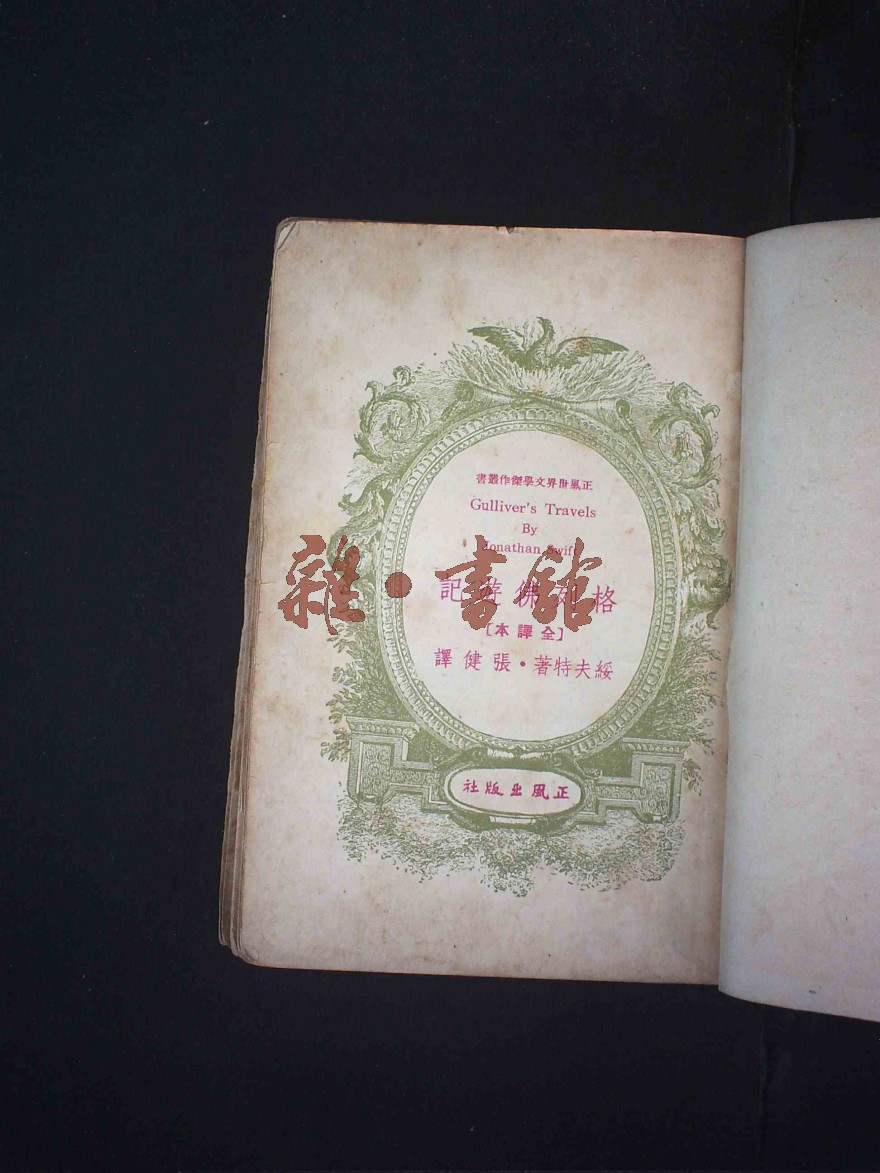 正風世界文學傑作叢書
Gulliver's Travels
By
Jonathan Swift
格列佛遊記
[全譯本]
綏夫特著·張健譯
正風出版社
雜·書館